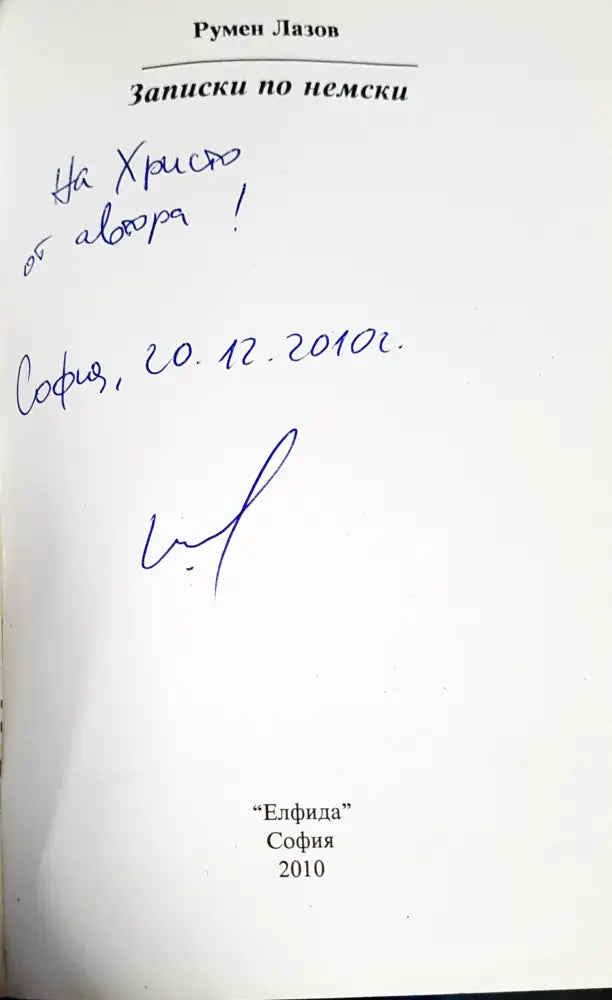 Румен Лазов
Записки по немски
На Христо
от автора !
София, 20. 12. 2010г.
“Елфида”
София
2010